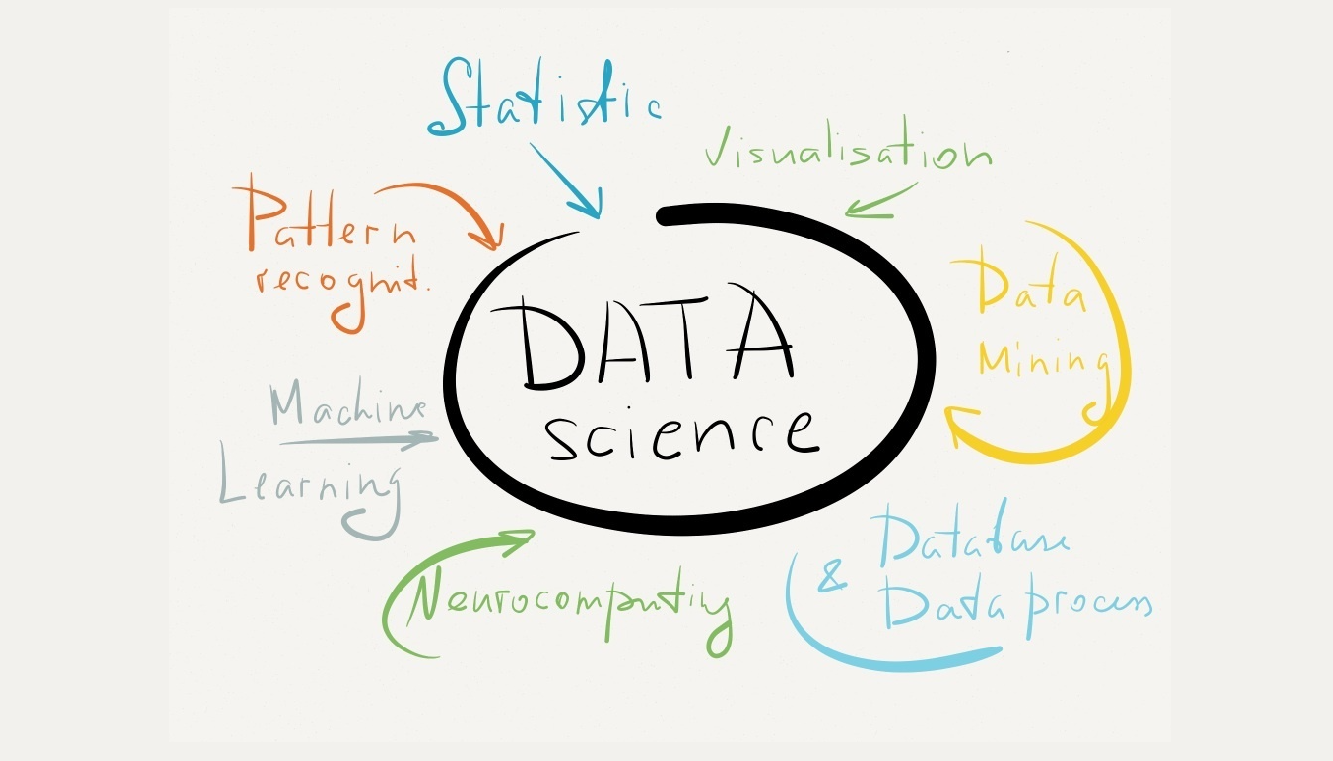 Statistic
Visualisation
Pattern
recognit.
DATA
science
Data
Mining
Machine
Learning
Neurocomputing
& Database
Data process